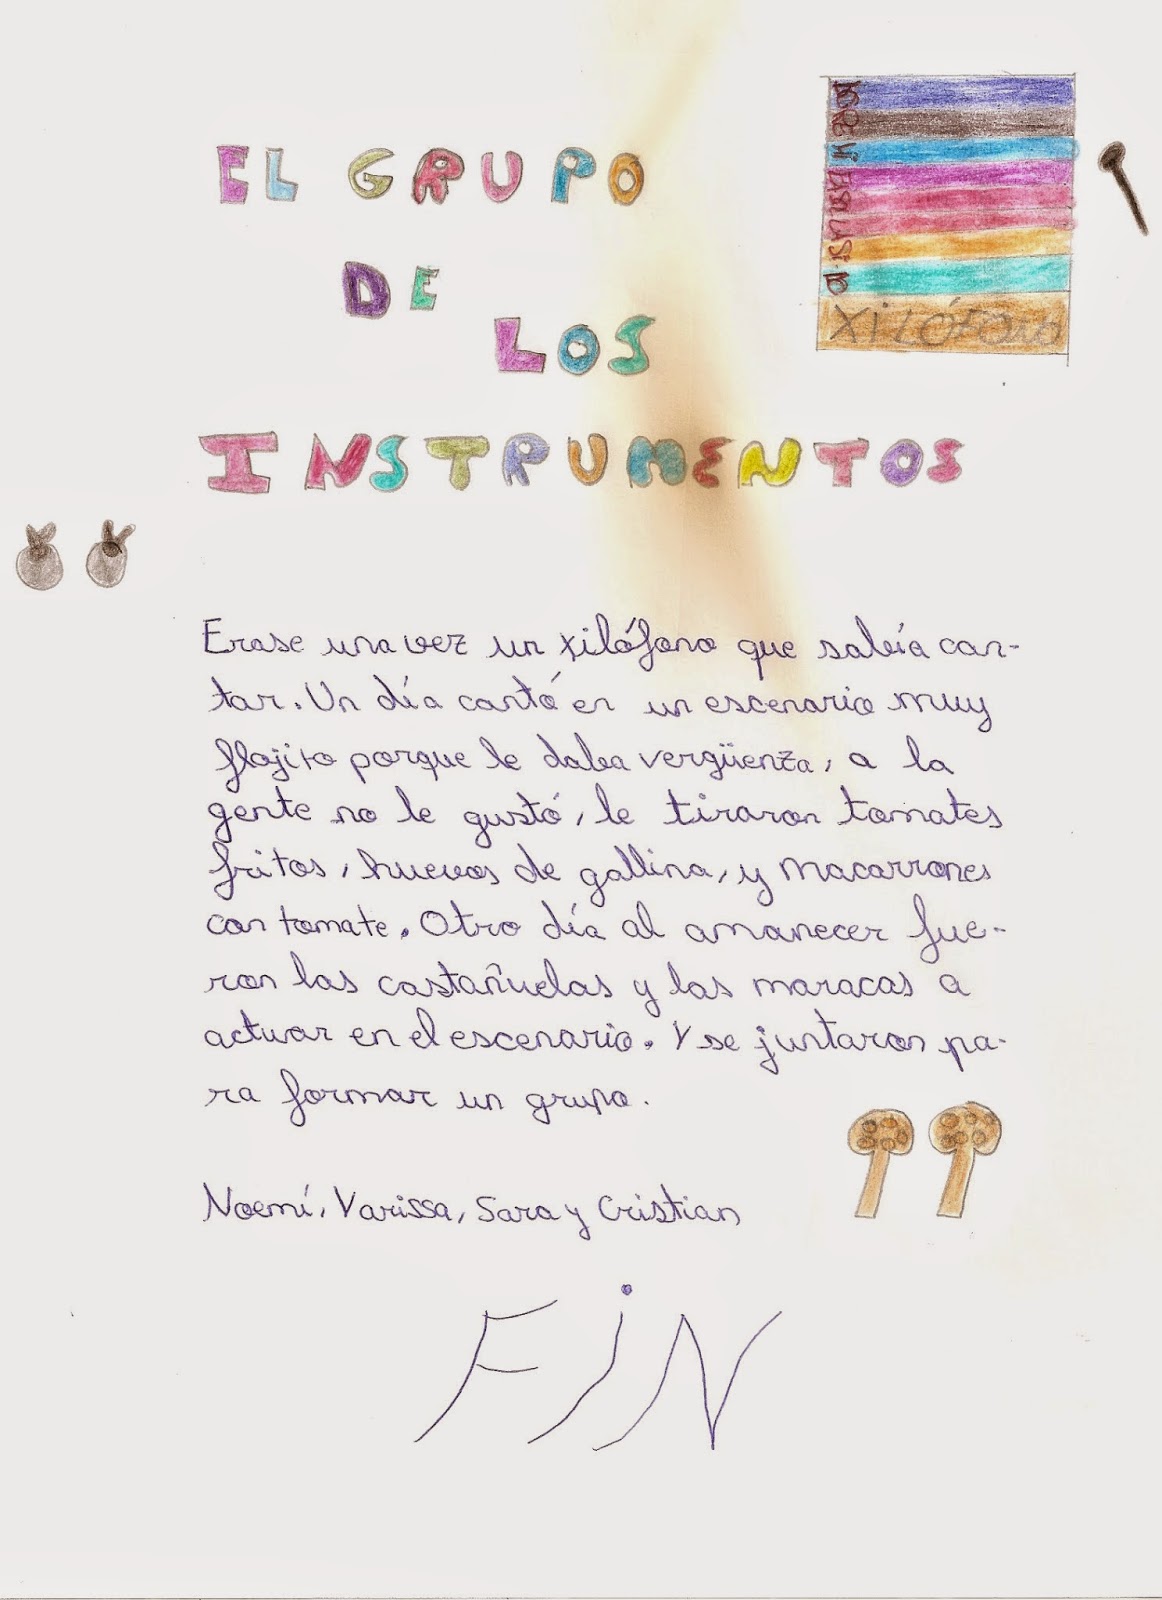 EL GRUPO
DE
LOS
INSTRUMENTOS
XiLófono
Erase una vez un xilófono que sabía can-
tar. Un día cantó en un escenario muy
flojito porque le daba vergüenza, a la
gente no le gustó, le tiraron tomates
fritos, huevos de gallina, y macarrones
con tomate. Otro día al amanecer fue-
ron las castañuelas y las maracas a
actuar en el escenario. Y se juntaron pa-
ra formar un grupo.
Noemí, Yarissa, Sara y Cristian
FiN